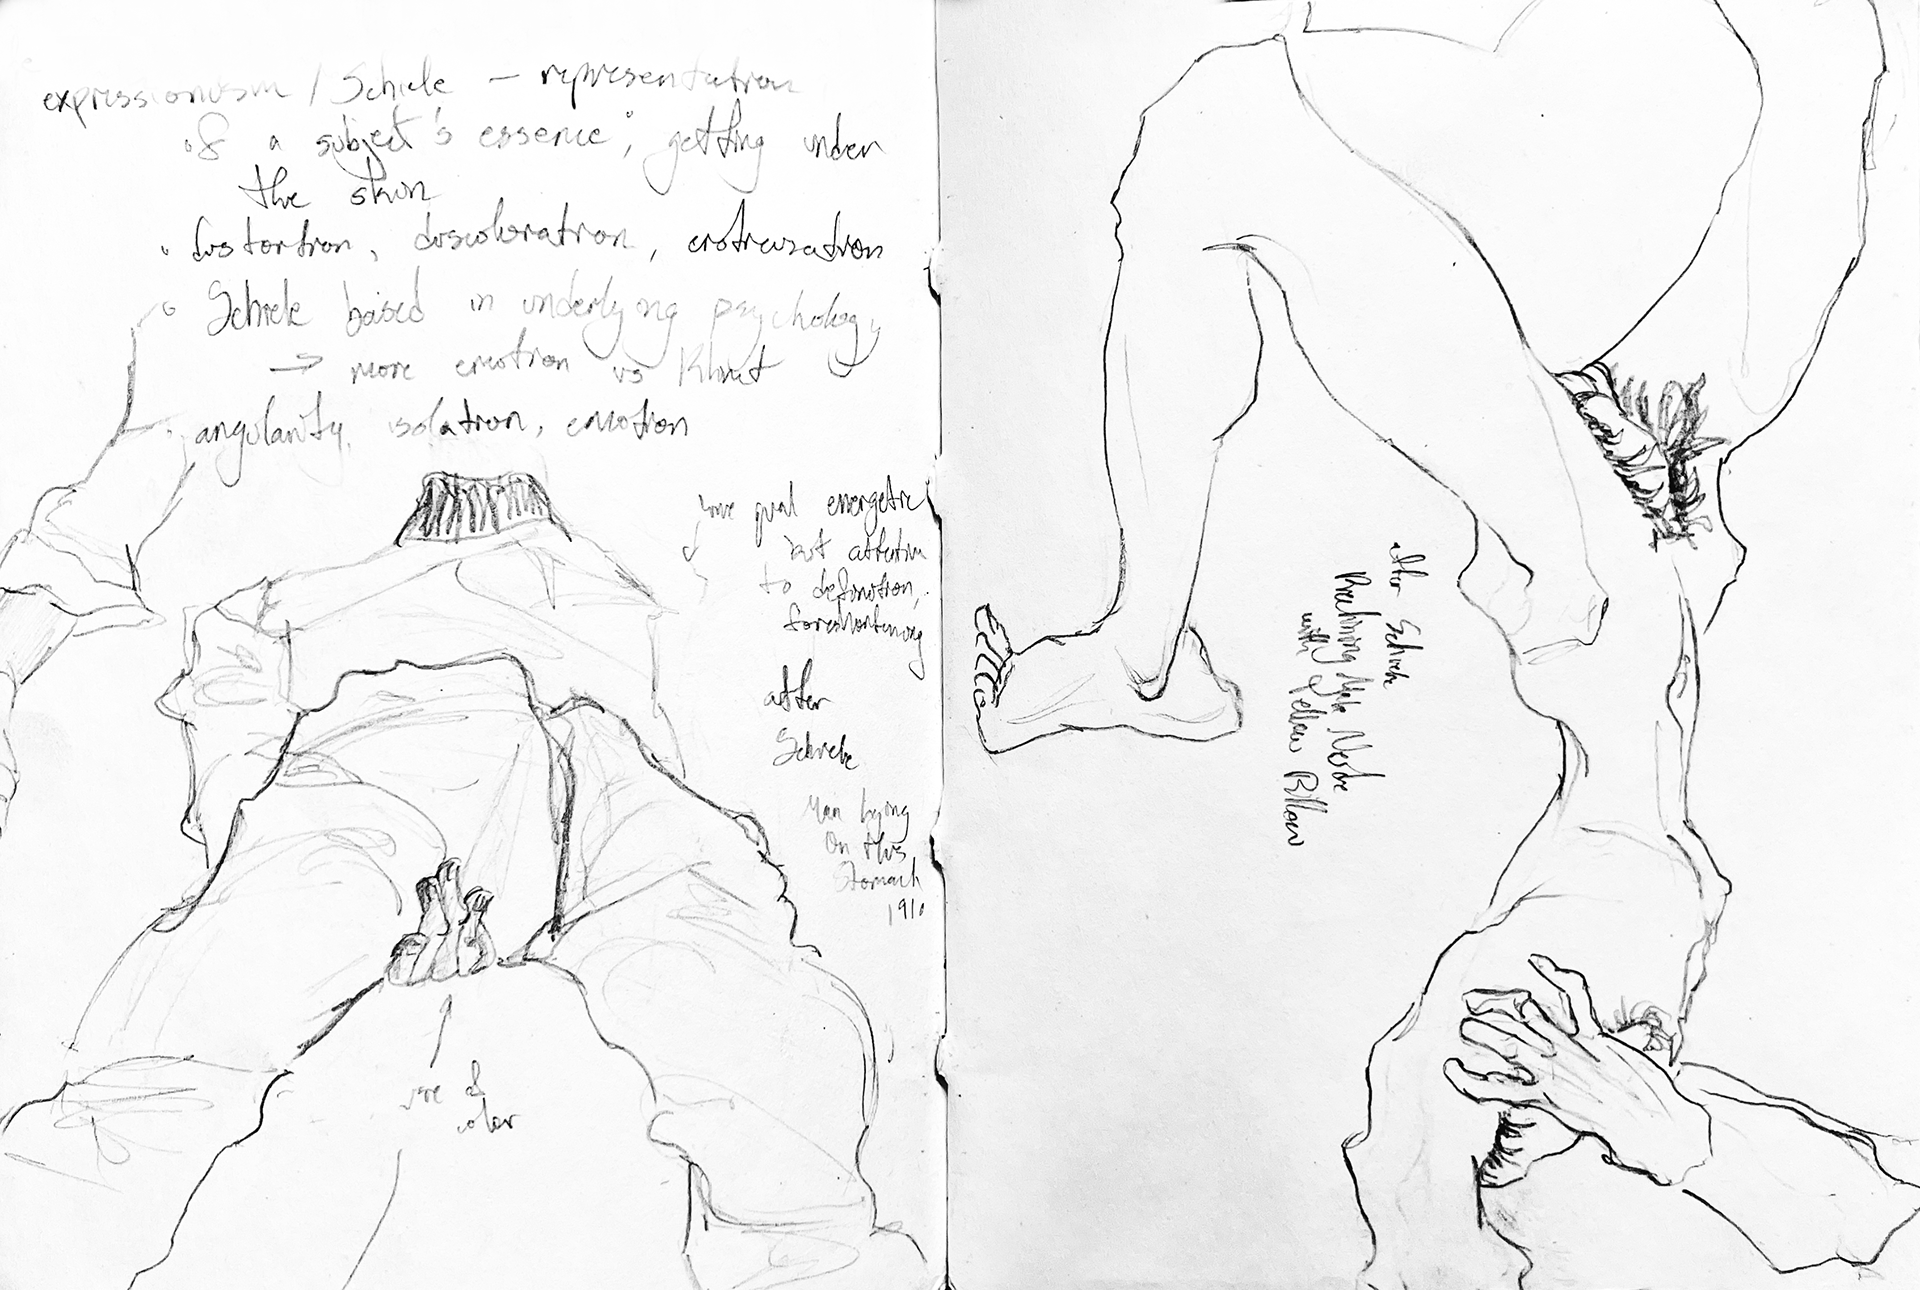 expressionism / Schiele – representation
of a subject's 'essence', getting under
the skin
• distortion, discoloration, eroticisation
• Schiele based in underlying psychology
→ more emotion vs Klimt
• angularity, isolation, emotion
line qual energetic
but attention
to definition,
foreshortening
after
Schiele
Man lying
on his
Stomach
1910
use of
color
after Schiele
Reclining Male Nude
with Yellow Pillow